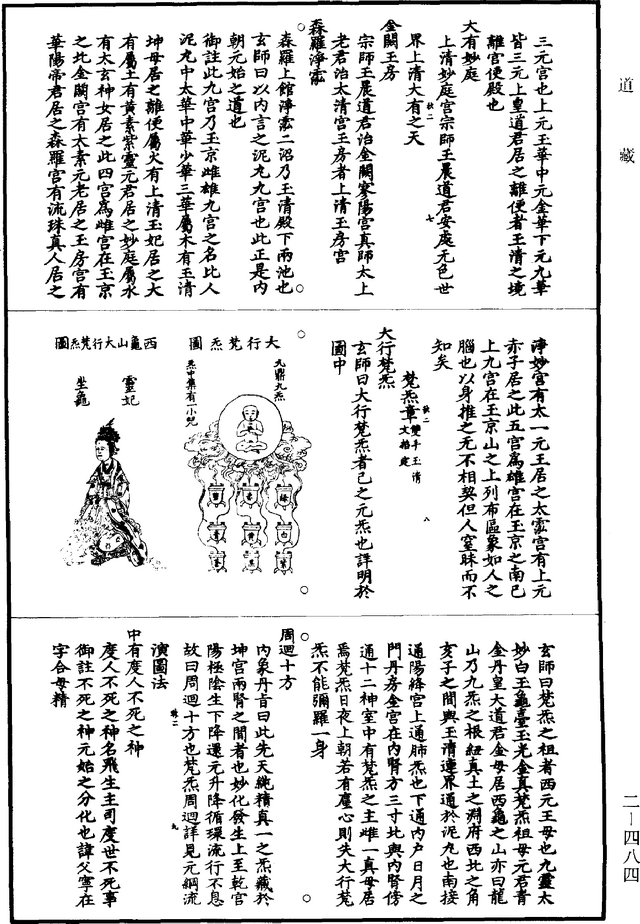 道藏
三元宮也上元玉華中元金華下元九華
皆三元上皇道君居之離便者玉清之境
離宮便殿也
大有妙庭
上清妙庭宮宗師玉晨道君安處无色世
界上清大有之天
七
金闕玉房
宗師玉晨道君治金闕寥陽宮真師太上
老君治太清宮玉房者上清玉房宮
森羅淨
森羅上館淨二沼乃玉清殿下兩池也
玄師曰以內言之泥九九宮也此正是內
朝元始之道也
御註此九宮乃玉京雌雄九宮之名比人
泥九中太華中華少華三華屬木有玉清
坤母居之離便屬火有上清玉妃居之大
有屬土有黃素紫靈元君居之妙庭屬水
有太玄神女居之此四宮為雌宮在玉京
之北金闕宮有太素元老居之玉房宮有
華陽帝君居之森羅宮有流珠真人居之
淨妙宮有太一元王居之太宮有上元
赤子居之此五宮為雄宮在玉京之南已
上九宮在玉京山之上列布區象如人之
腦也以身推之无不相契但人窒昧而不
知矣
梵炁章雙斗玉清文格定
八
大行梵炁
玄師曰大行梵炁者己之元炁也詳明於
圖中
大行梵炁圖
九鼎九炁
炁中集有一小兒
西龜山大行梵炁圖
靈妃
坐龜
玄師曰梵炁之祖者西元王母也九靈太
妙白玉龜臺玉光金真梵炁祖母元君青
金丹皇大道君金母居西龜之山亦曰龍
山乃九炁之根紐真土之淵府西北之角
亥子之間與玉清連界通於泥九也南接
通陽絳宮上通肺炁也下通內戶日月之
門丹房金宮在內腎方三寸比與內腎傍
通十二神室中有梵炁之主雌一真母居
焉梵炁日夜上朝若有塵心則失大行梵
炁不能彌羅一身
周迴十方
內象丹音曰此先天純精真一之炁藏於
坤宮兩腎之間者也妙化發生上至乾宮
陽極陰生下降還元升降循環流行不息
故曰周迴十方也梵炁周迴詳見元綱流
演圖法
九
中有度人不死之神
度人不死之神名飛生主司度世不死事
御註不死之神元始之分化也諱父寧在
字合母精
二一四八四